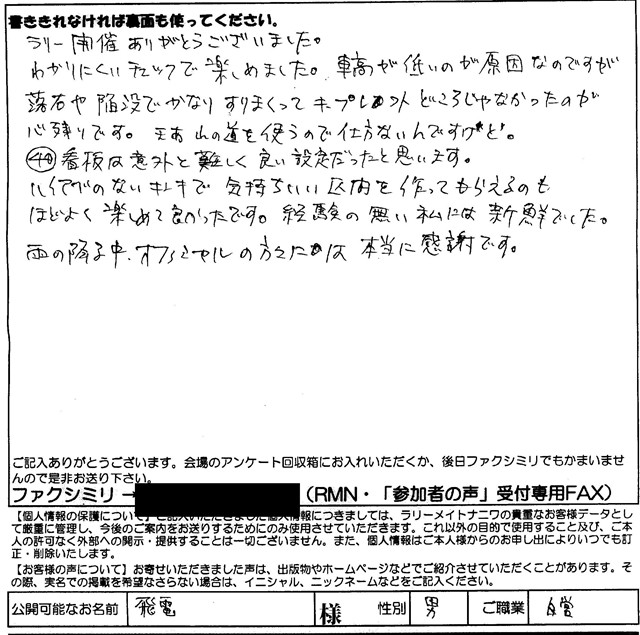 書ききれなければ裏面も使ってください。
ラリー開催ありがとうございました。
わかりにくいチェックで楽しめました。車高が低いのが原因なのですが
落石や陥没でかなりすりまくってキープレフトどころじゃなかったのが
心残りです。まあ山の道を使うので仕方ないんですけど。
㊵看板は意外と難しく良い設定だったと思います。
ハイアベのないキレキで気持ちいい区内を作ってもらえるのも
ほどよく楽しめて良かったです。経験の無い私には新鮮でした。
雨の降る中、オフィシャルの方々には本当に感謝です。
ご記入ありがとうございます。会場のアンケート回収箱にお入れいただくか、後日ファクシミリでもかまいませ
んので是非お送り下さい。
ファクシミリ→（RMN・「参加者の声」受付専用FAX）
【個人情報の保護について】ご記入いただきました個人情報につきましては、ラリーメイトナニワの貴重なお客様データとし
て厳重に管理し、今後のご案内をお送りするためにのみ使用させていただきます。これ以外の目的で使用すること及び、ご本
人の許可なく外部への開示・提供することは一切ございません。また、個人情報はご本人様からのお申し出によりいつでも訂
正・削除いたします。
【お客様の声について】お寄せいただきました声は、出版物やホームページなどでご紹介させていただくことがあります。そ
の際、実名での掲載を希望なさらない場合は、イニシャル、ニックネームなどをご記入ください。
公開可能なお名前 飛電 様 性別 男 ご職業 自営